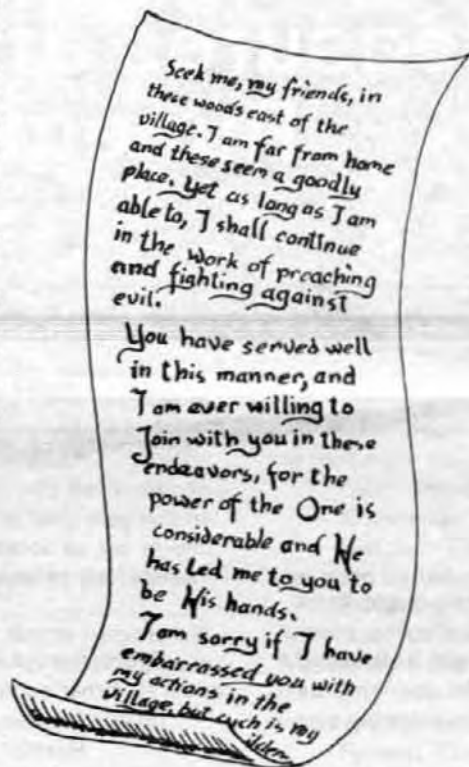 Seek me, my friends, in
these woods east of the
village. I am far from home
and these seem a goodly
place. Yet as long as I am
able to, I shall continue
in the work of preaching
and fighting against
evil.
You have served well
in this manner, and
I am ever willing to
Join with you in these
endeavors, for the
power of the One is
considerable and He
has Led me to you to
be His hands.
I am sorry if I have
embarrassed you with
my actions in the
village, but such is my